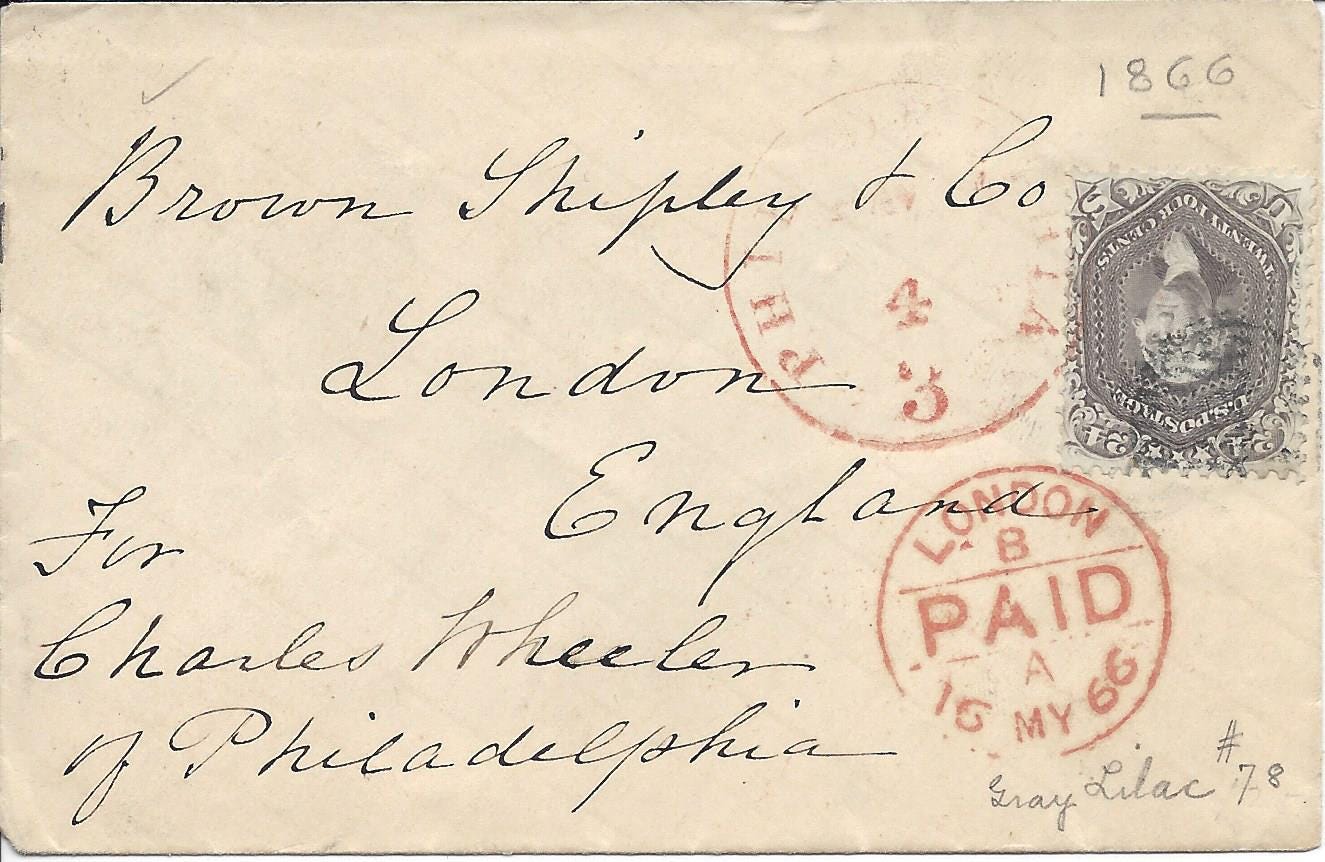 1866
Brown Shipley & Co
London
England
For
Charles Wheeler
of Philadelphia
PHIL
4
3
LONDON
B
PAID
A
15 MY 66
U S
TWENTY FOUR CENTS
U.S. POSTAGE
24 24
Gray Lilac #78